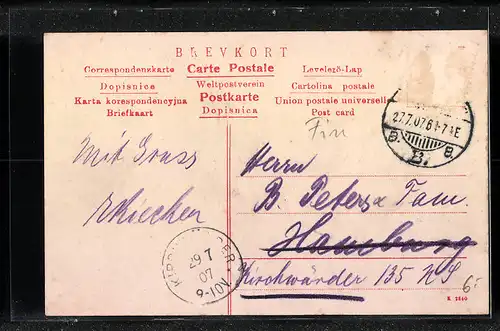 BREVKORT
Correspondenzkarte Carte Postale Levelező-Lap
Dopisnice Weltpostverein Cartolina postale
Karta korespondencyjna Postkarte Union postale universelle
Briefkaart Dopisnica Post card
27.7.07.6-7 E
B.
Mit Gruss
Herrn
B Peters & Fam.
Hamburg
Kirchwärder 135 NS
29 7
07
9-10V
6.-